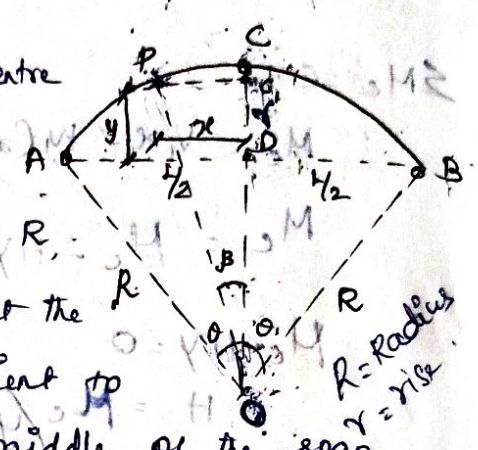 C
entre
P
y
x
r
D
A
L/2
L/2
B
R.
β
R
R
t the
θ
θ
ent to
O
R = Radius
r = rise.
middle of the span